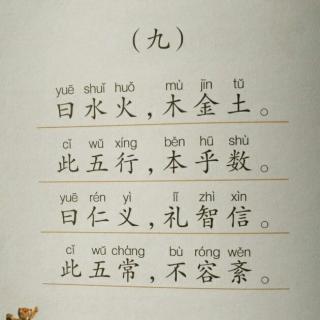 （九）
yuē shuǐ huǒ mù jīn tǔ
曰水火，木金土。
cǐ wǔ xíng běn hū shù
此五行，本乎数。
yuē rén yì lǐ zhì xìn
曰仁义，礼智信。
cǐ wǔ cháng bù róng wěn
此五常，不容紊。